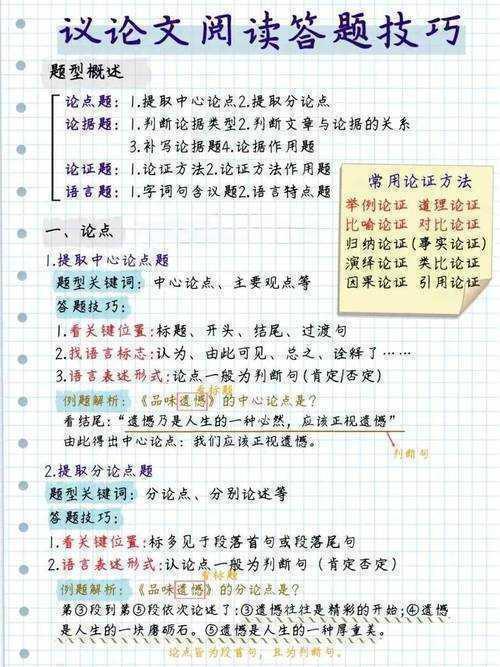 议论文阅读答题技巧
题型概述
论点题：1.提取中心论点2.提取分论点
论据题：1.判断论据类型2.判断文章与论据的关系
3.补写论据题4.论据作用题
论证题：1.论证方法2.论证方法作用题
语言题：1.字词句含议题2.语言特点题
常用论证方法
举例论证 道理论证
比喻论证 对比论证
归纳论证(事实论证)
演绎论证 类比论证
因果论证 引用论证
一、论点
1.提取中心论点题
题型关键词：中心论点、主要观点等
答题技巧：
1.看关键位置：标题、开头、结尾、过渡句
2.找语言标志：认为、由此可见、总之、诠释了……
3.语言表述形式：论点一般为判断句(肯定/否定)
看标题
例题解析：《品味遗憾》的中心论点是？
看结尾：“遗憾乃是人生的一种必然，应该正视遗憾”
由此得出中心论点：我们应该正视遗憾。
判断句
2.提取分论点题
题型关键词：分论点、分别论述等
答题技巧：
1.看关键位置：标多见于段落首句或段落尾句
2.语言表述形式：认论点一般为判断句（肯定否定）
看标题
例题解析：《品味遗憾》的分论点是？
第③段到第⑤段依次论述了：③遗憾往往是精彩的开始；④遗憾
是人生的一块磨砺石。⑤遗憾是人生的一种厚重美。
论点皆为段首句，且为判断句。